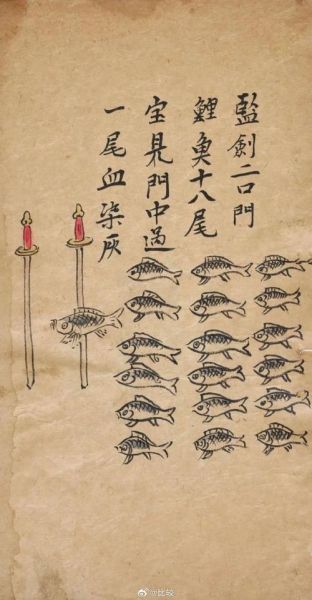 監劍二口門
鯉魚十八尾
宝見門中過
一尾血染灰
@比较